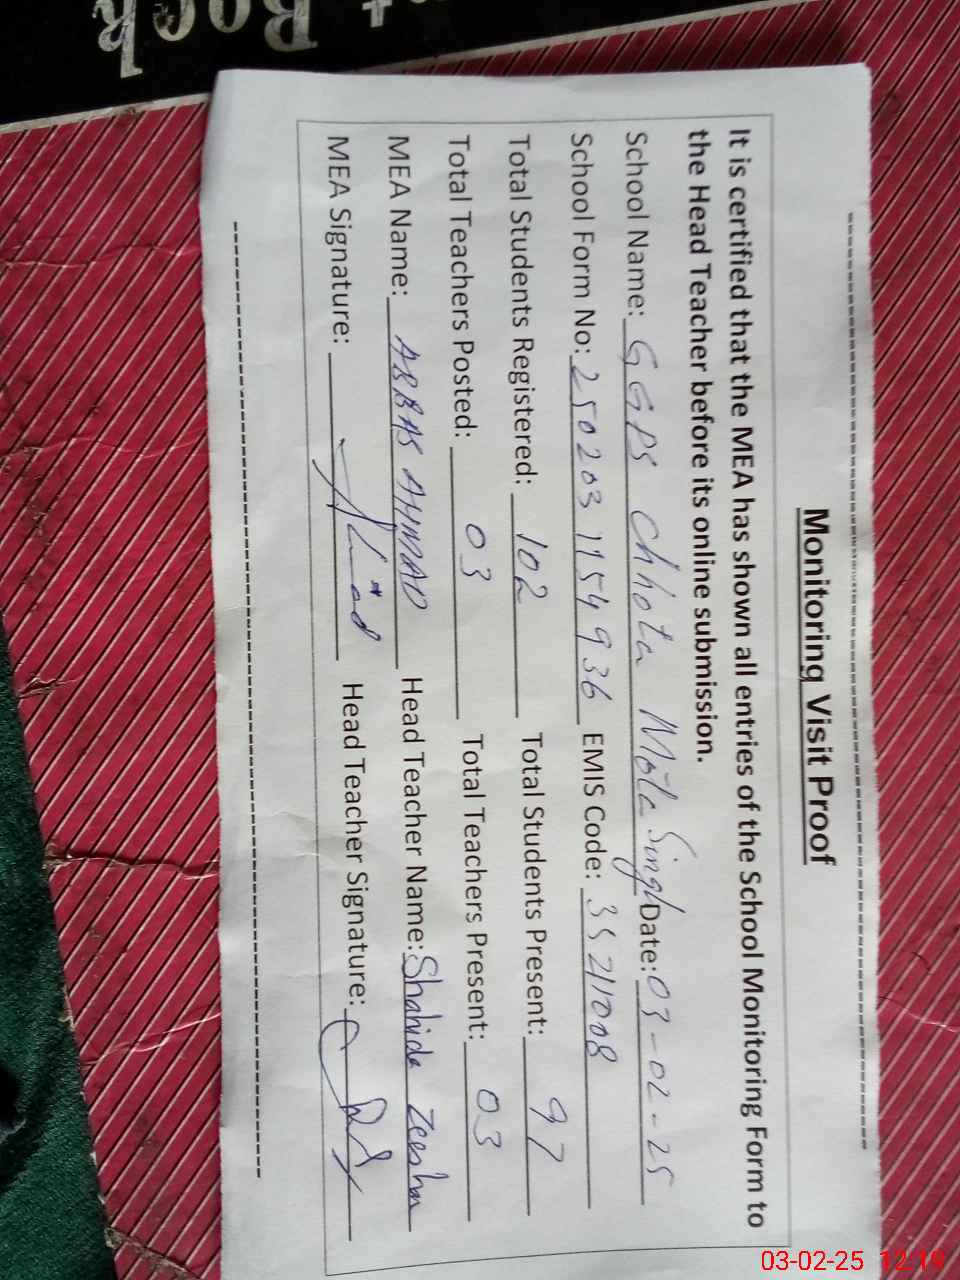 t Rock
Monitoring Visit Proof
It is certified that the MEA has shown all entries of the School Monitoring Form to
the Head Teacher before its online submission.
School Name: GGPS Chhota Mola Singh Date: 03-02-25
School Form No: 25020311554936 EMIS Code: 35211008
Total Students Registered: 102 Total Students Present: 97
Total Teachers Posted: 03 Total Teachers Present: 03
MEA Name: ABBAS AHMAD Head Teacher Name: Shahida Zeeshan
MEA Signature: Head Teacher Signature:
03-02-25 12:19